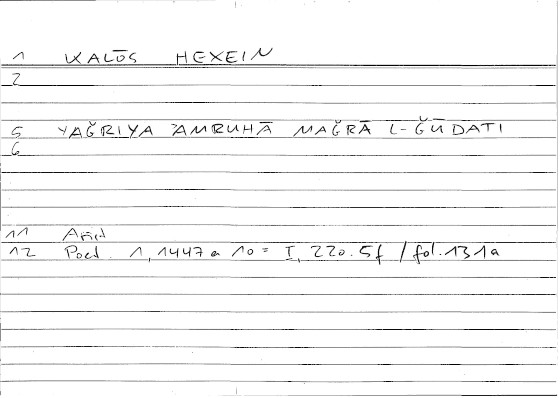 1 KALŌS HEXEIN
2
5 YAǦRIYA ʾAMRUHĀ MAǦRĀ L-ǦŪDATI
6
11 Arist
12 Poet. 1, 1447 a 10 = I, 220.5f / fol. 131a